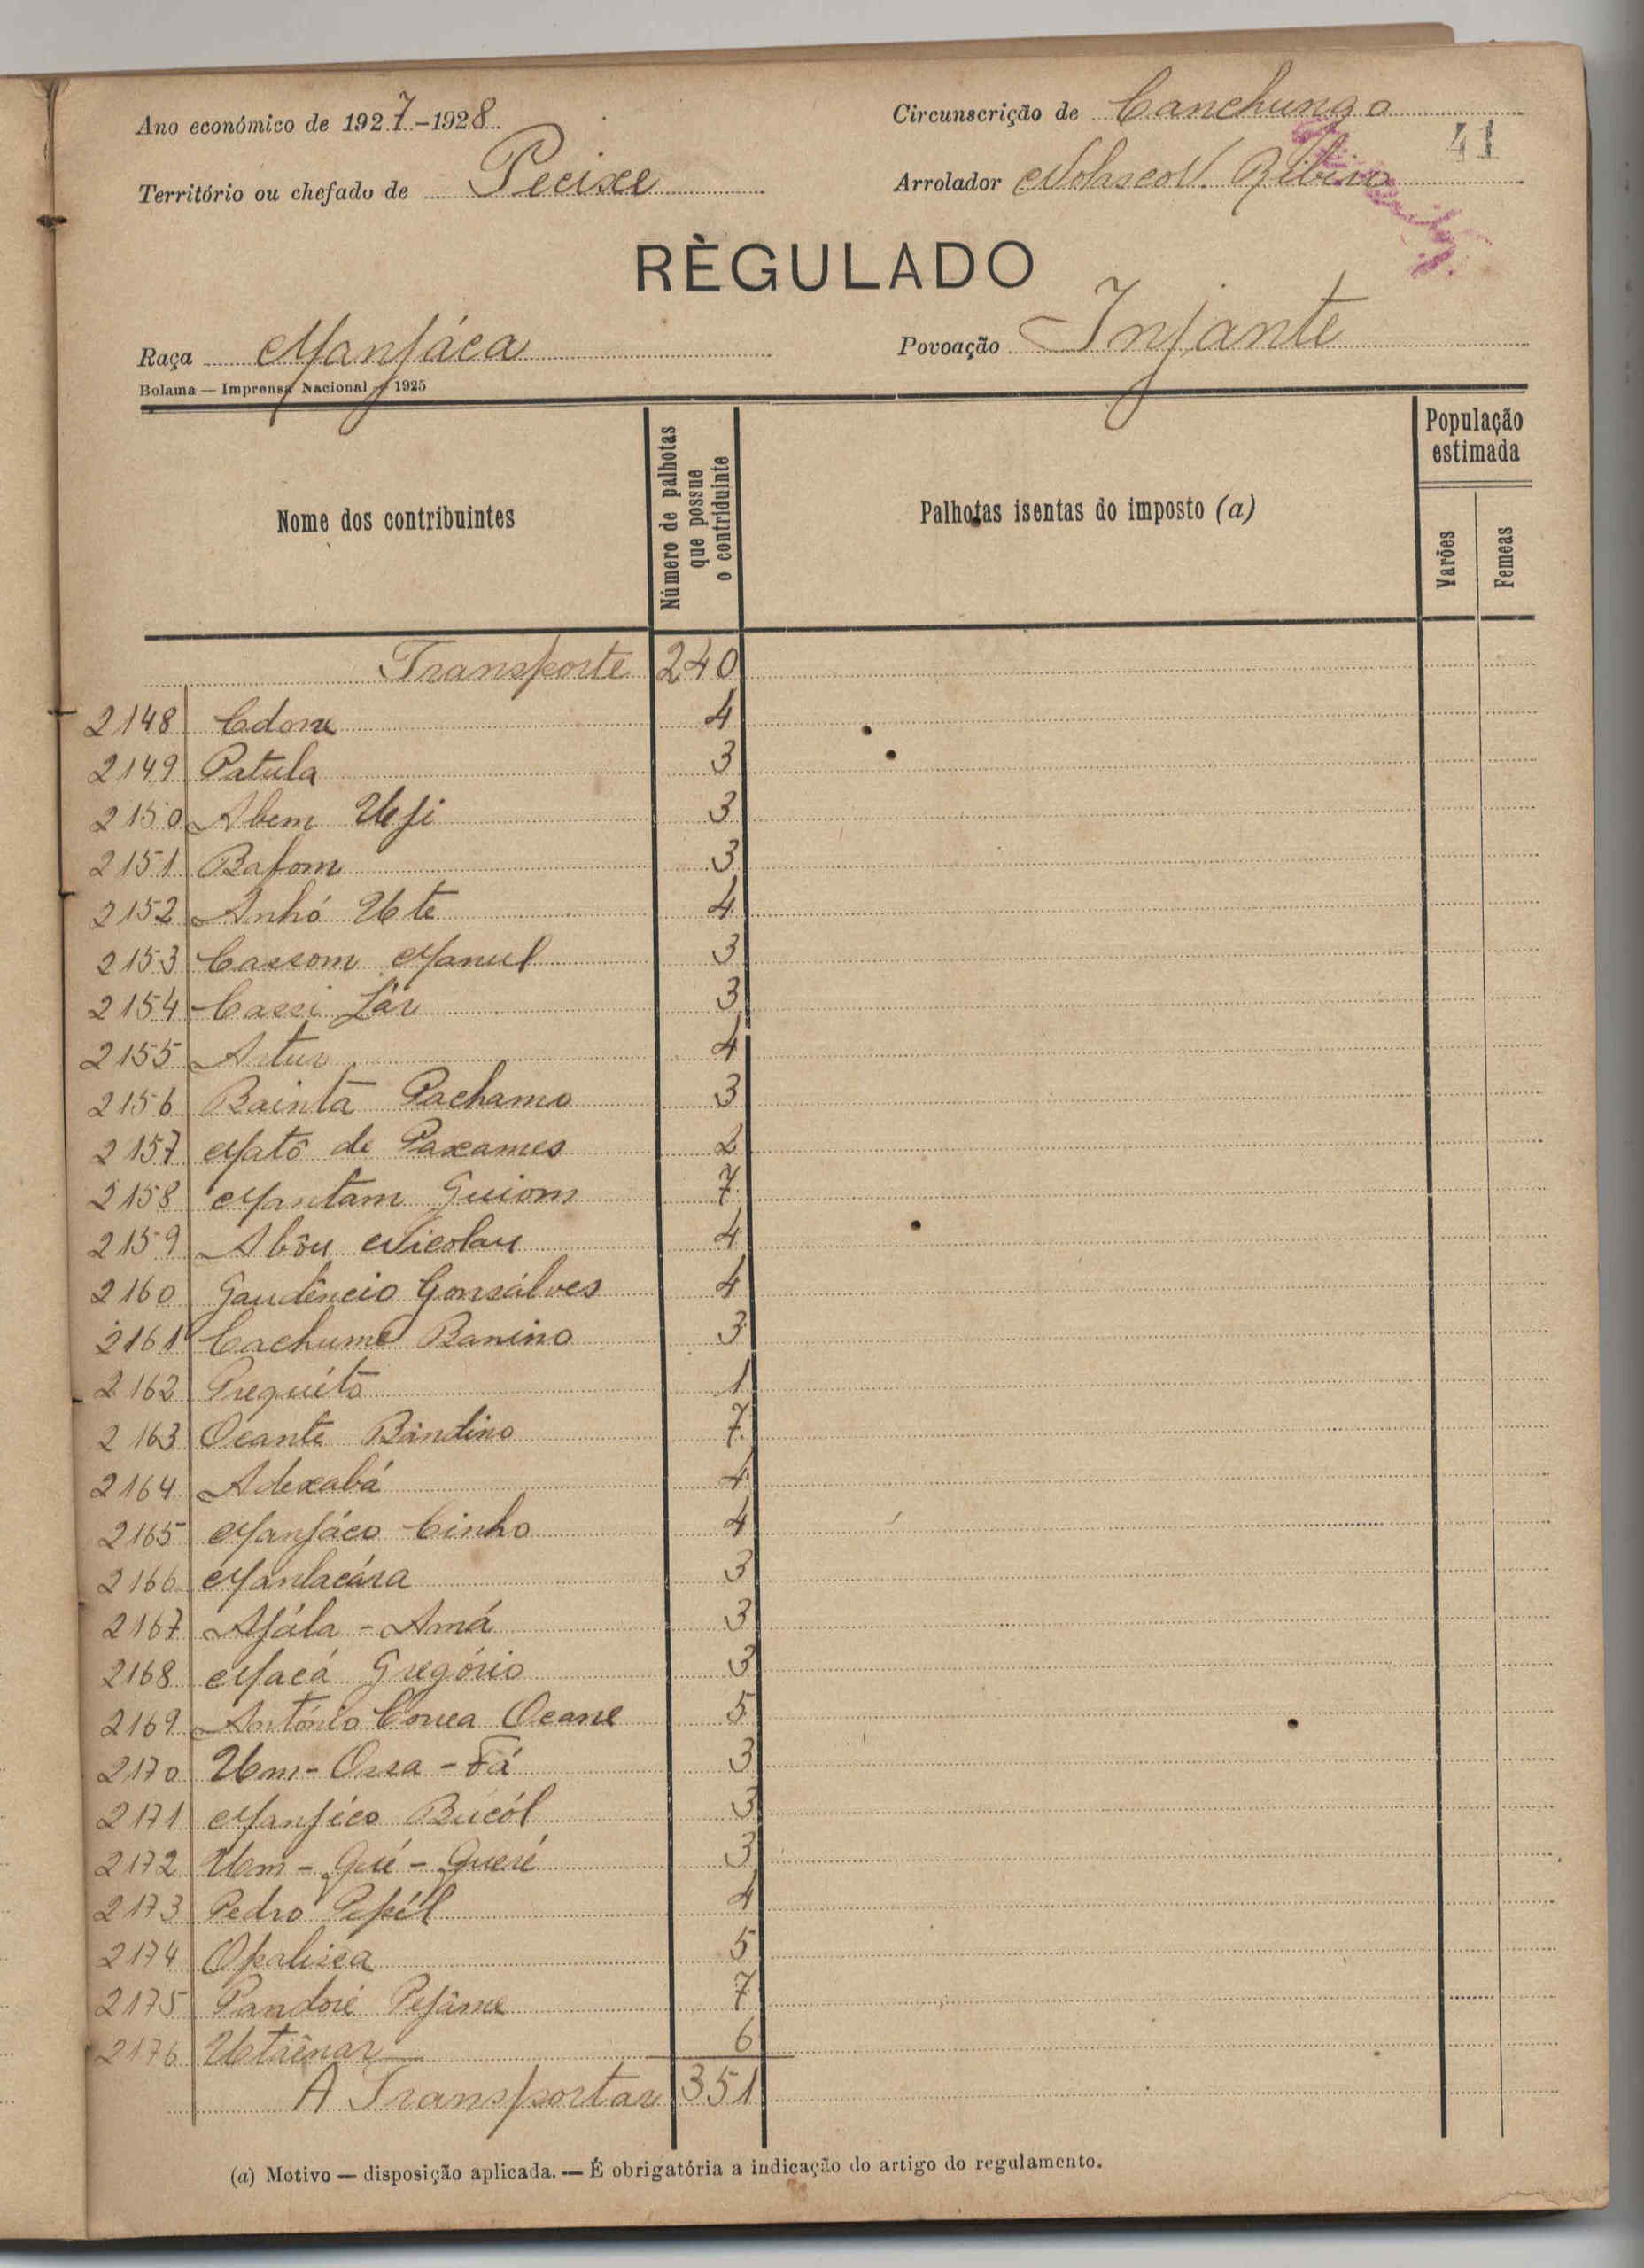 Ano económico de 1927-1928
Circunscrição de Canchungo
41
Território ou chefado de Pecixe
Arrolador Nolasco V. Ribeiro
RÈGULADO
Raça Manjáca
Povoação Injante
Bolama — Imprensa Nacional — 1925
Nome dos contribuintes
Número de palhotas que possue o contriduinte
Palhotas isentas do imposto (a)
População estimada
Varões
Femeas
Transporte 240
2148 Cdone 4
2149 Patula 3
2150 Abem Uji 3
2151 Bafom 3
2152 Anhó Ute 4
2153 Cassom Manul 3
2154 Cassi Lár 3
2155 Artur 4
2156 Baintá Pachamo 3
2157 Matô de Paxames 2
2158 Mantam Guiom 7
2159 Abôu Nicolau 4
2160 Gaudêncio Gonsálves 4
2161 Cachume Banino 3
2162 Prequito 1
2163 Ocante Bandino 7
2164 Adexabá 4
2165 Manjáco Cinho 4
2166 Manlacára 3
2167 Afála - Amá 3
2168 Macá Gregório 3
2169 António Correa Ocane 5
2170 Um - Ossa - Fá 3
2171 Manjéco Bucól 3
2172 Um - Gué - Gueré 3
2173 Pedro Pepél 4
2174 Opalissa 5
2175 Pandoré Pefâme 7
2176 Utiênar 6
A Transportar 351
(a) Motivo — disposição aplicada. — É obrigatória a indicação do artigo do regulamento.